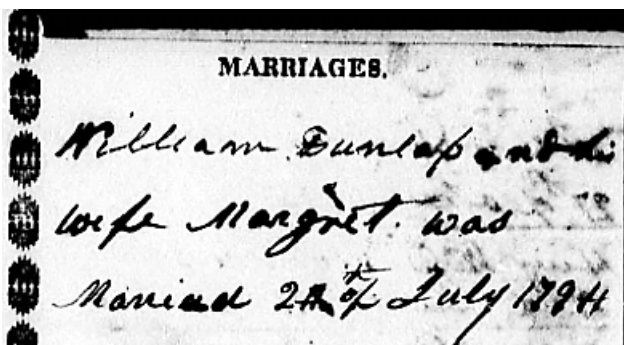 MARRIAGES.
William Dunlap and his
wife Margret was
Maried of July 1794